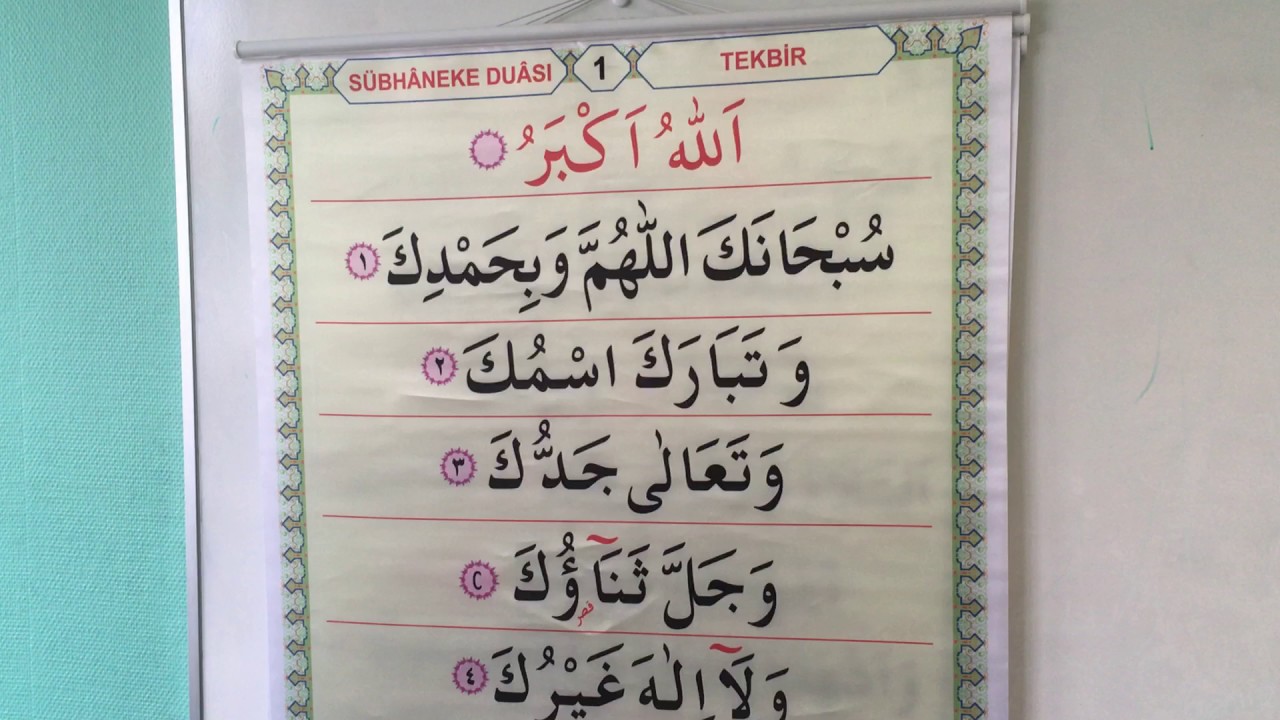 SÜBHÂNEKE DUÂSI 1 TEKBİR
اَللّٰهُ اَكْبَرُ
سُبْحَانَكَ اللّٰهُمَّ وَبِحَمْدِكَ ١
وَ تَبَارَكَ اسْمُكَ ٢
وَ تَعَالٰى جَدُّكَ ٣
وَ جَلَّ ثَنَآؤُكَ C
قصر
وَ لَآ اِلٰهَ غَيْرُكَ ٤